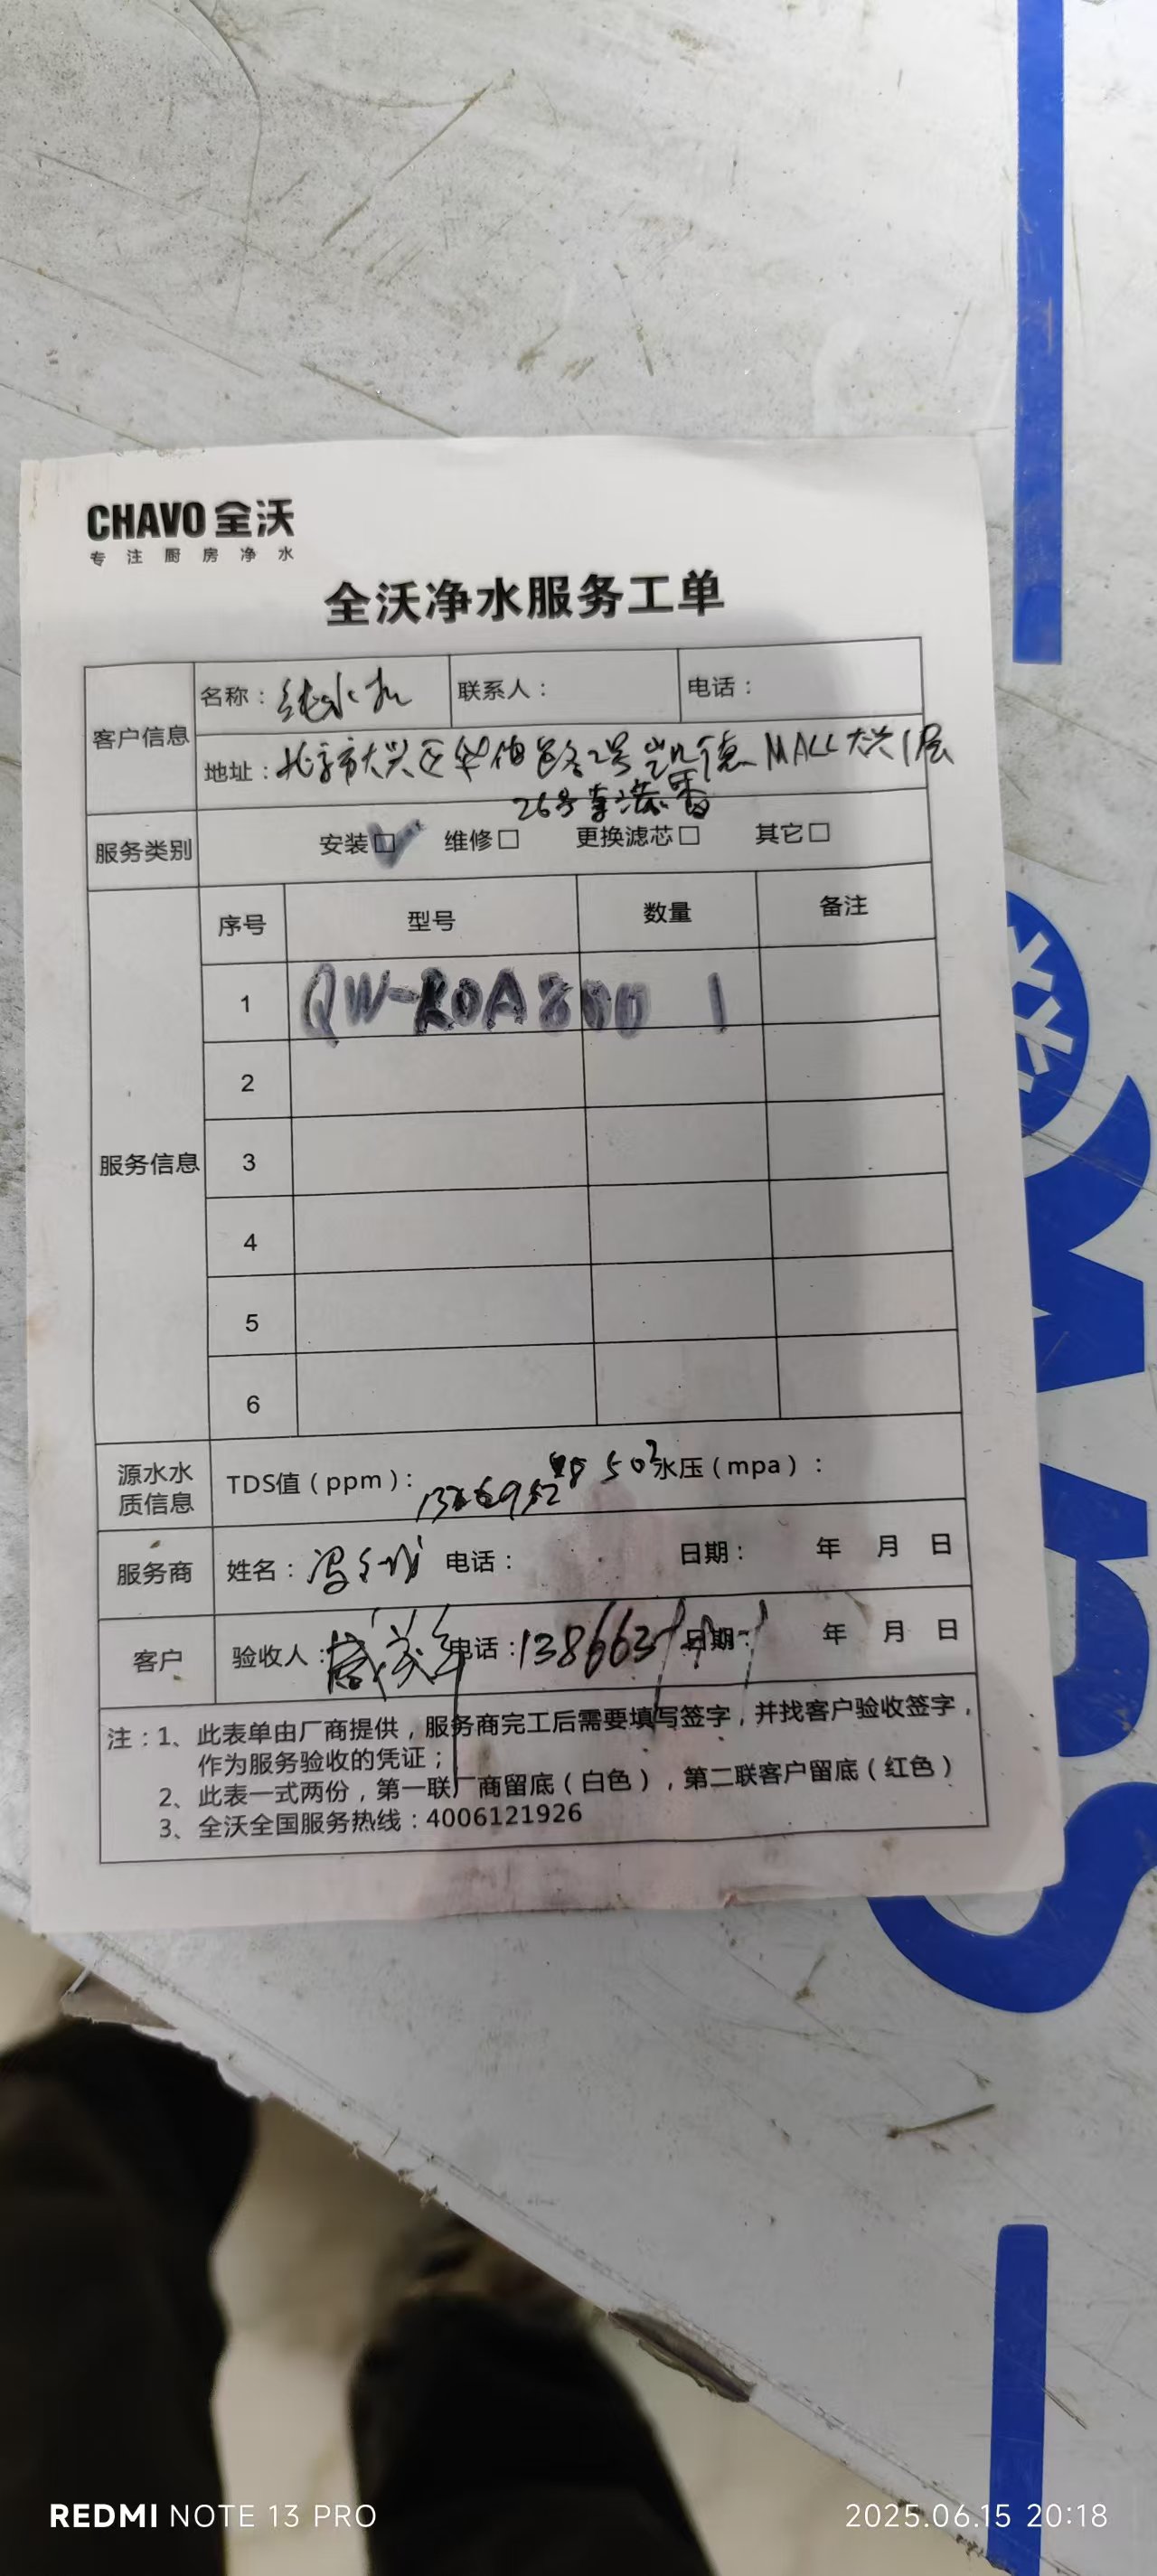 CHAVO 全沃
专注厨房净水
全沃净水服务工单
客户信息 名称：纯水机 联系人： 电话：
地址：北京市大兴区华佰路2号凯德MALL大兴1层
26号李添香
服务类别 安装☑ 维修□ 更换滤芯□ 其它□
服务信息 序号 型号 数量 备注
1 QW-ROA800 1
2
3
4
5
6
源水水质信息 TDS值（ppm）： 水压（mpa）：
服务商 姓名： 电话： 日期： 年 月 日
客户 验收人： 电话：138663 日期： 年 月 日
注：1、此表单由厂商提供，服务商完工后需要填写签字，并找客户验收签字，
作为服务验收的凭证；
2、此表一式两份，第一联厂商留底（白色），第二联客户留底（红色）
3、全沃全国服务热线：4006121926
REDMI NOTE 13 PRO
2025.06.15 20:18